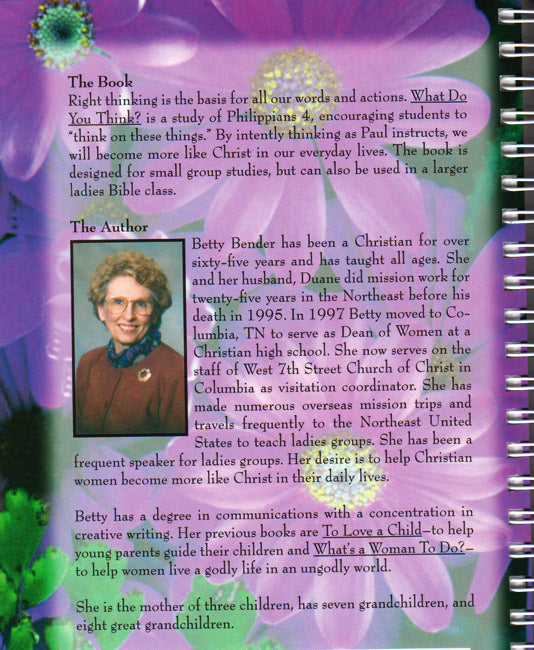 The Book
Right thinking is the basis for all our words and actions. What Do
You Think? is a study of Philippians 4, encouraging students to
“think on these things.” By intently thinking as Paul instructs, we
will become more like Christ in our everyday lives. The book is
designed for small group studies, but can also be used in a larger
ladies Bible class.
The Author
Betty Bender has been a Christian for over
sixty-five years and has taught all ages. She
and her husband, Duane did mission work for
twenty-five years in the Northeast before his
death in 1995. In 1997 Betty moved to Co-
lumbia, TN to serve as Dean of Women at a
Christian high school. She now serves on the
staff of West 7th Street Church of Christ in
Columbia as visitation coordinator. She has
made numerous overseas mission trips and
travels frequently to the Northeast United
States to teach ladies groups. She has been a
frequent speaker for ladies groups. Her desire is to help Christian
women become more like Christ in their daily lives.
Betty has a degree in communications with a concentration in
creative writing. Her previous books are To Love a Child–to help
young parents guide their children and What’s a Woman To Do?–
to help women live a godly life in an ungodly world.
She is the mother of three children, has seven grandchildren, and
eight great grandchildren.